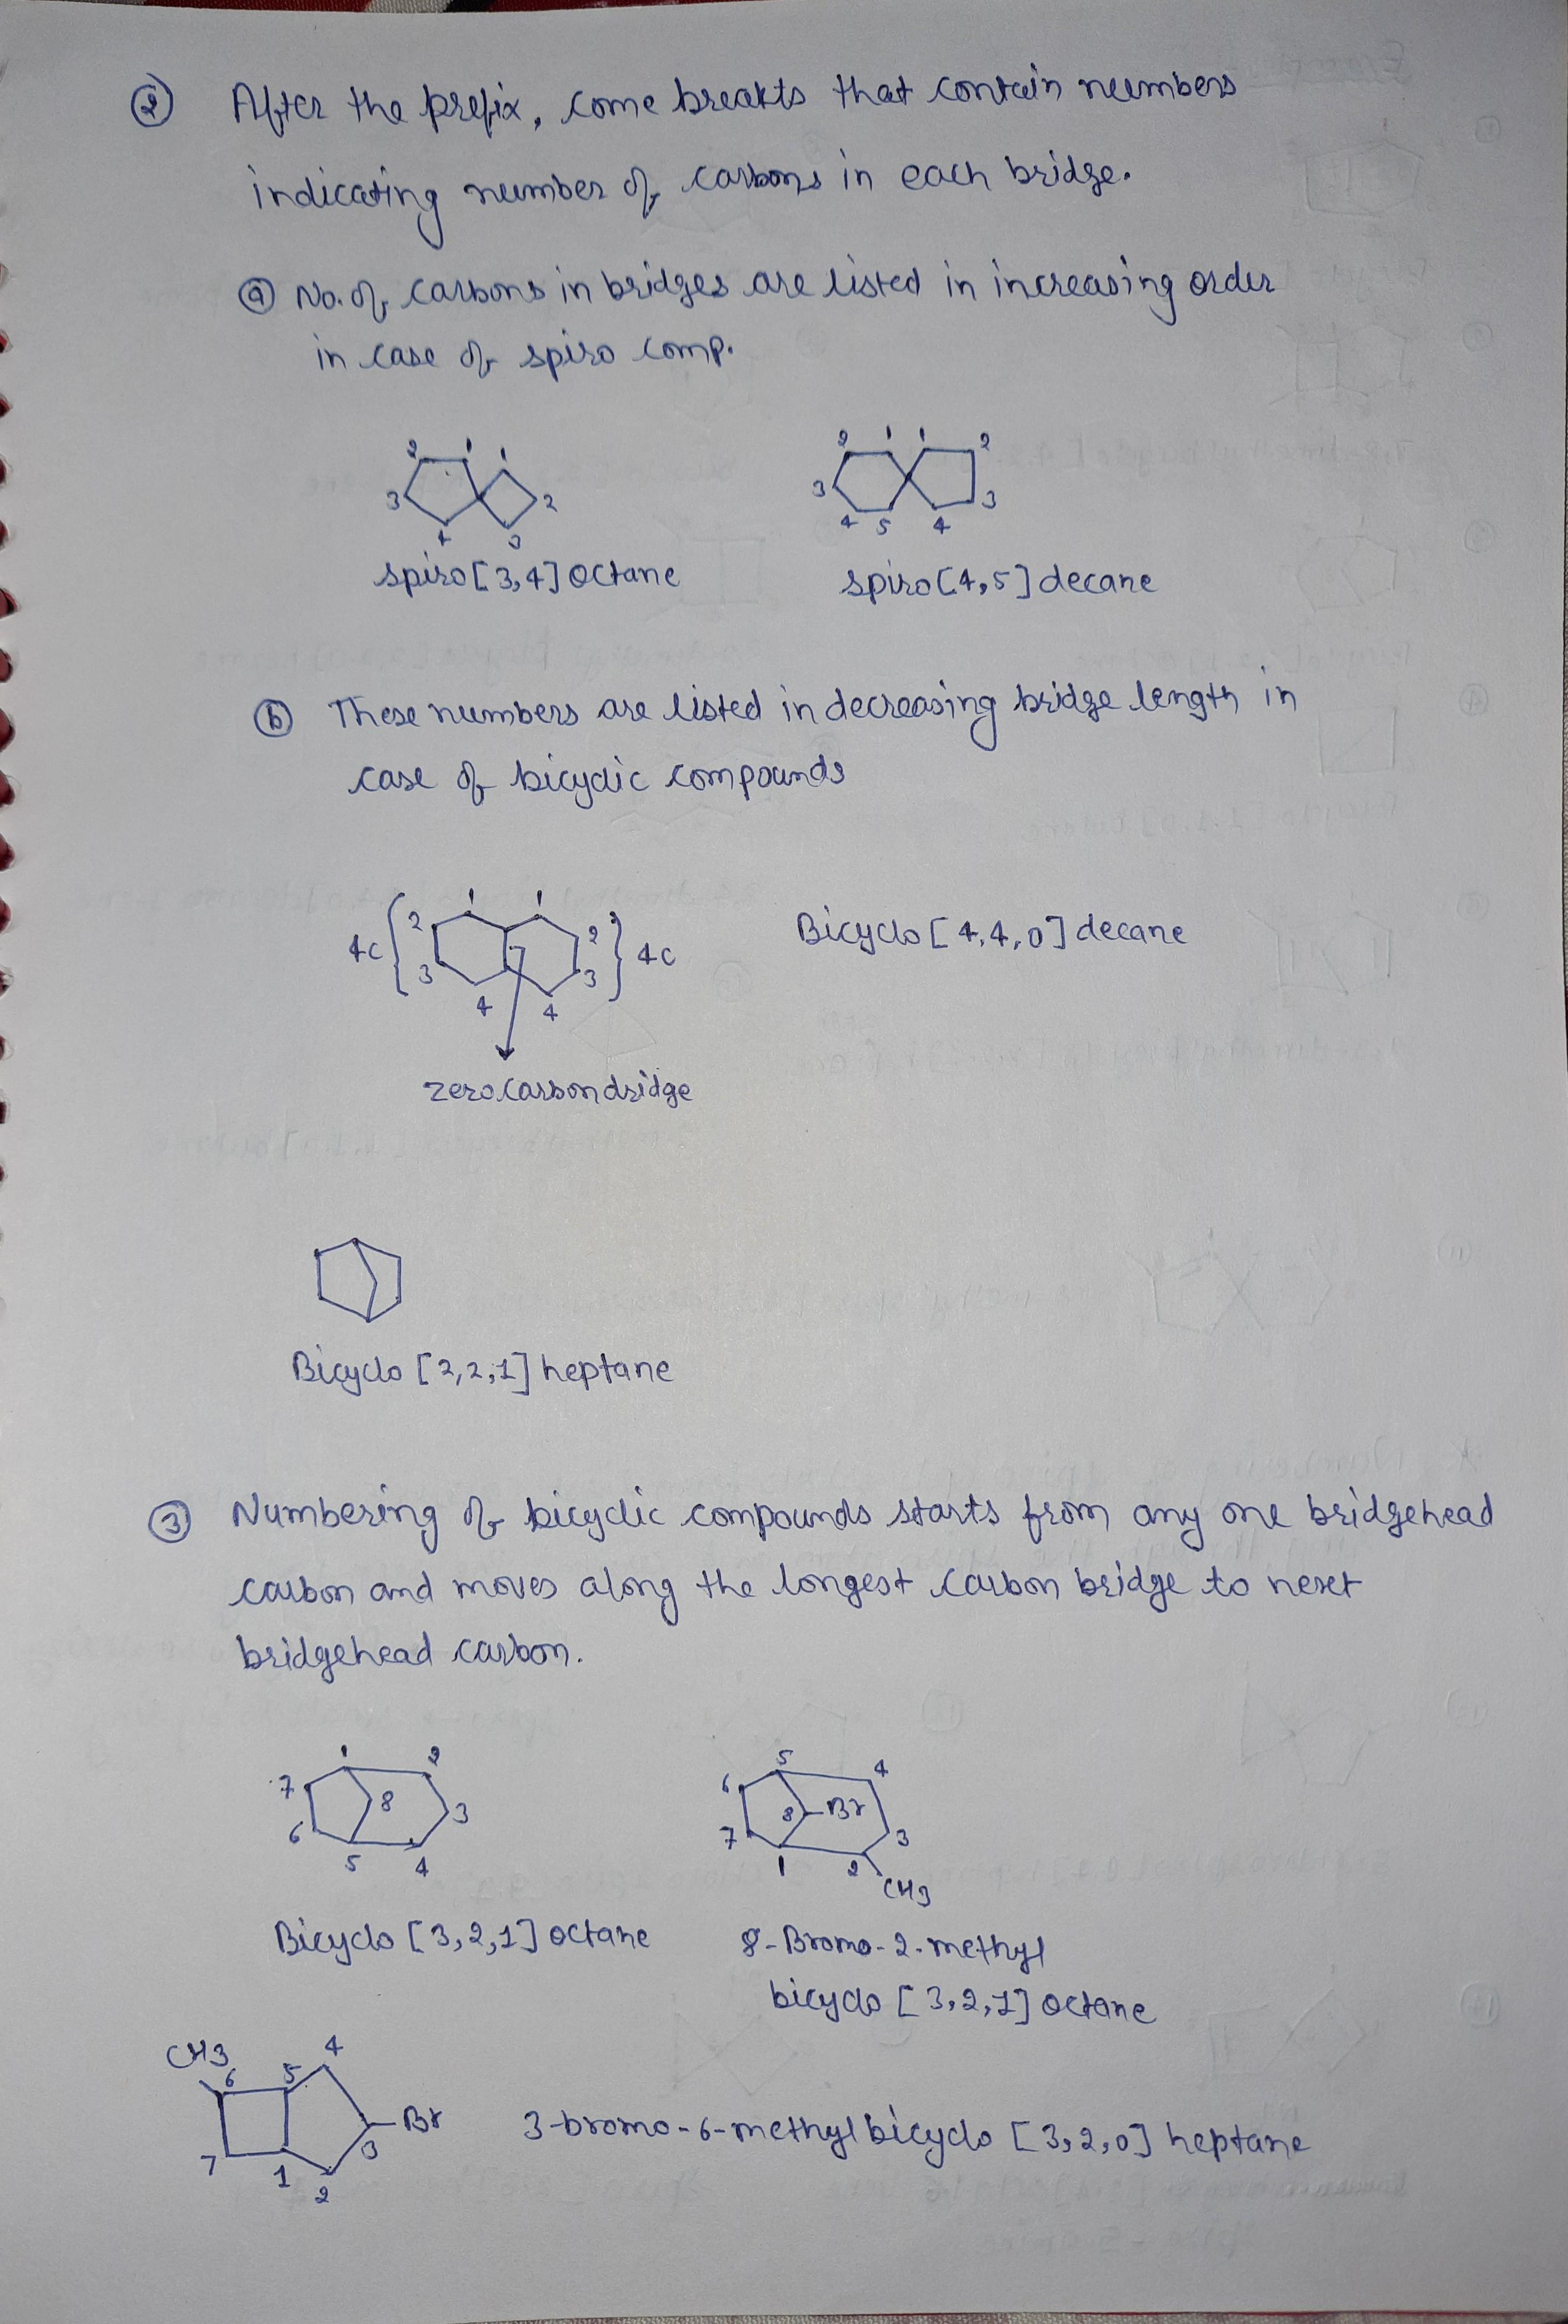 ② After the prefix, come breakts that contain numbers
indicating number of carbons in each bridge.
ⓐ No. of carbons in bridges are listed in increasing order
in case of spiro comp.
2 1 1
3 2
4 3
2 1 1 2
3 3
4 5 4
spiro[3,4]octane spiro[4,5]decane
ⓑ These numbers are listed in decreasing bridge length in
case of bicyclic compounds
1 1
4C { 2 2 } 4C
3 3
4 4
Bicyclo [4,4,0] decane
zero carbon dridge
Bicyclo [2,2,1] heptane
③ Numbering of bicyclic compounds starts from any one bridgehead
carbon and moves along the longest carbon bridge to next
bridgehead carbon.
1 2
7 8 3
6 5 4
5 4
6 8 Br
7 3
1 2
CH3
Bicyclo [3,2,1] octane 8-Bromo-2-methyl
bicyclo [3,2,1] octane
CH3 4
6 5
Br
3-bromo-6-methylbicyclo [3,2,0] heptane
7 1 3
2